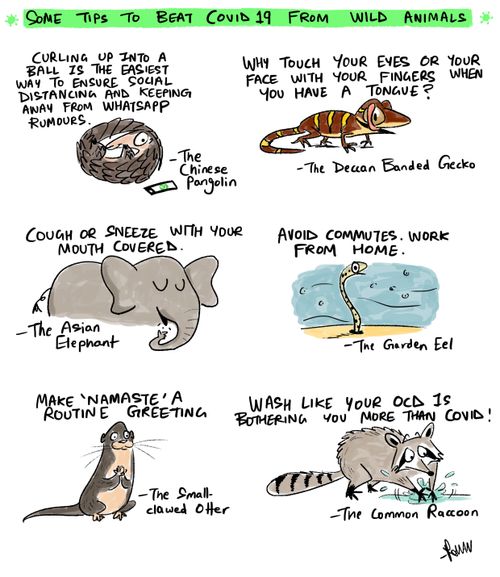 SOME TIPS TO BEAT COVID 19 FROM WILD ANIMALS
CURLING UP INTO A
BALL IS THE EASIEST
WAY TO ENSURE SOCIAL
DISTANCING AND KEEPING
AWAY FROM WHATSAPP
RUMOURS.
-The
Chinese
Pangolin
WHY TOUCH YOUR EYES OR YOUR
FACE WITH YOUR FINGERS WHEN
YOU HAVE A TONGUE?
-The Deccan Banded Gecko
COUGH OR SNEEZE WITH YOUR
MOUTH COVERED.
-The Asian
Elephant
AVOID COMMUTES. WORK
FROM HOME.
-The Garden Eel
MAKE 'NAMASTE' A
ROUTINE GREETING
-The Small-
clawed Otter
WASH LIKE YOUR OCD IS
BOTHERING YOU MORE THAN COVID!
-The Common Raccoon